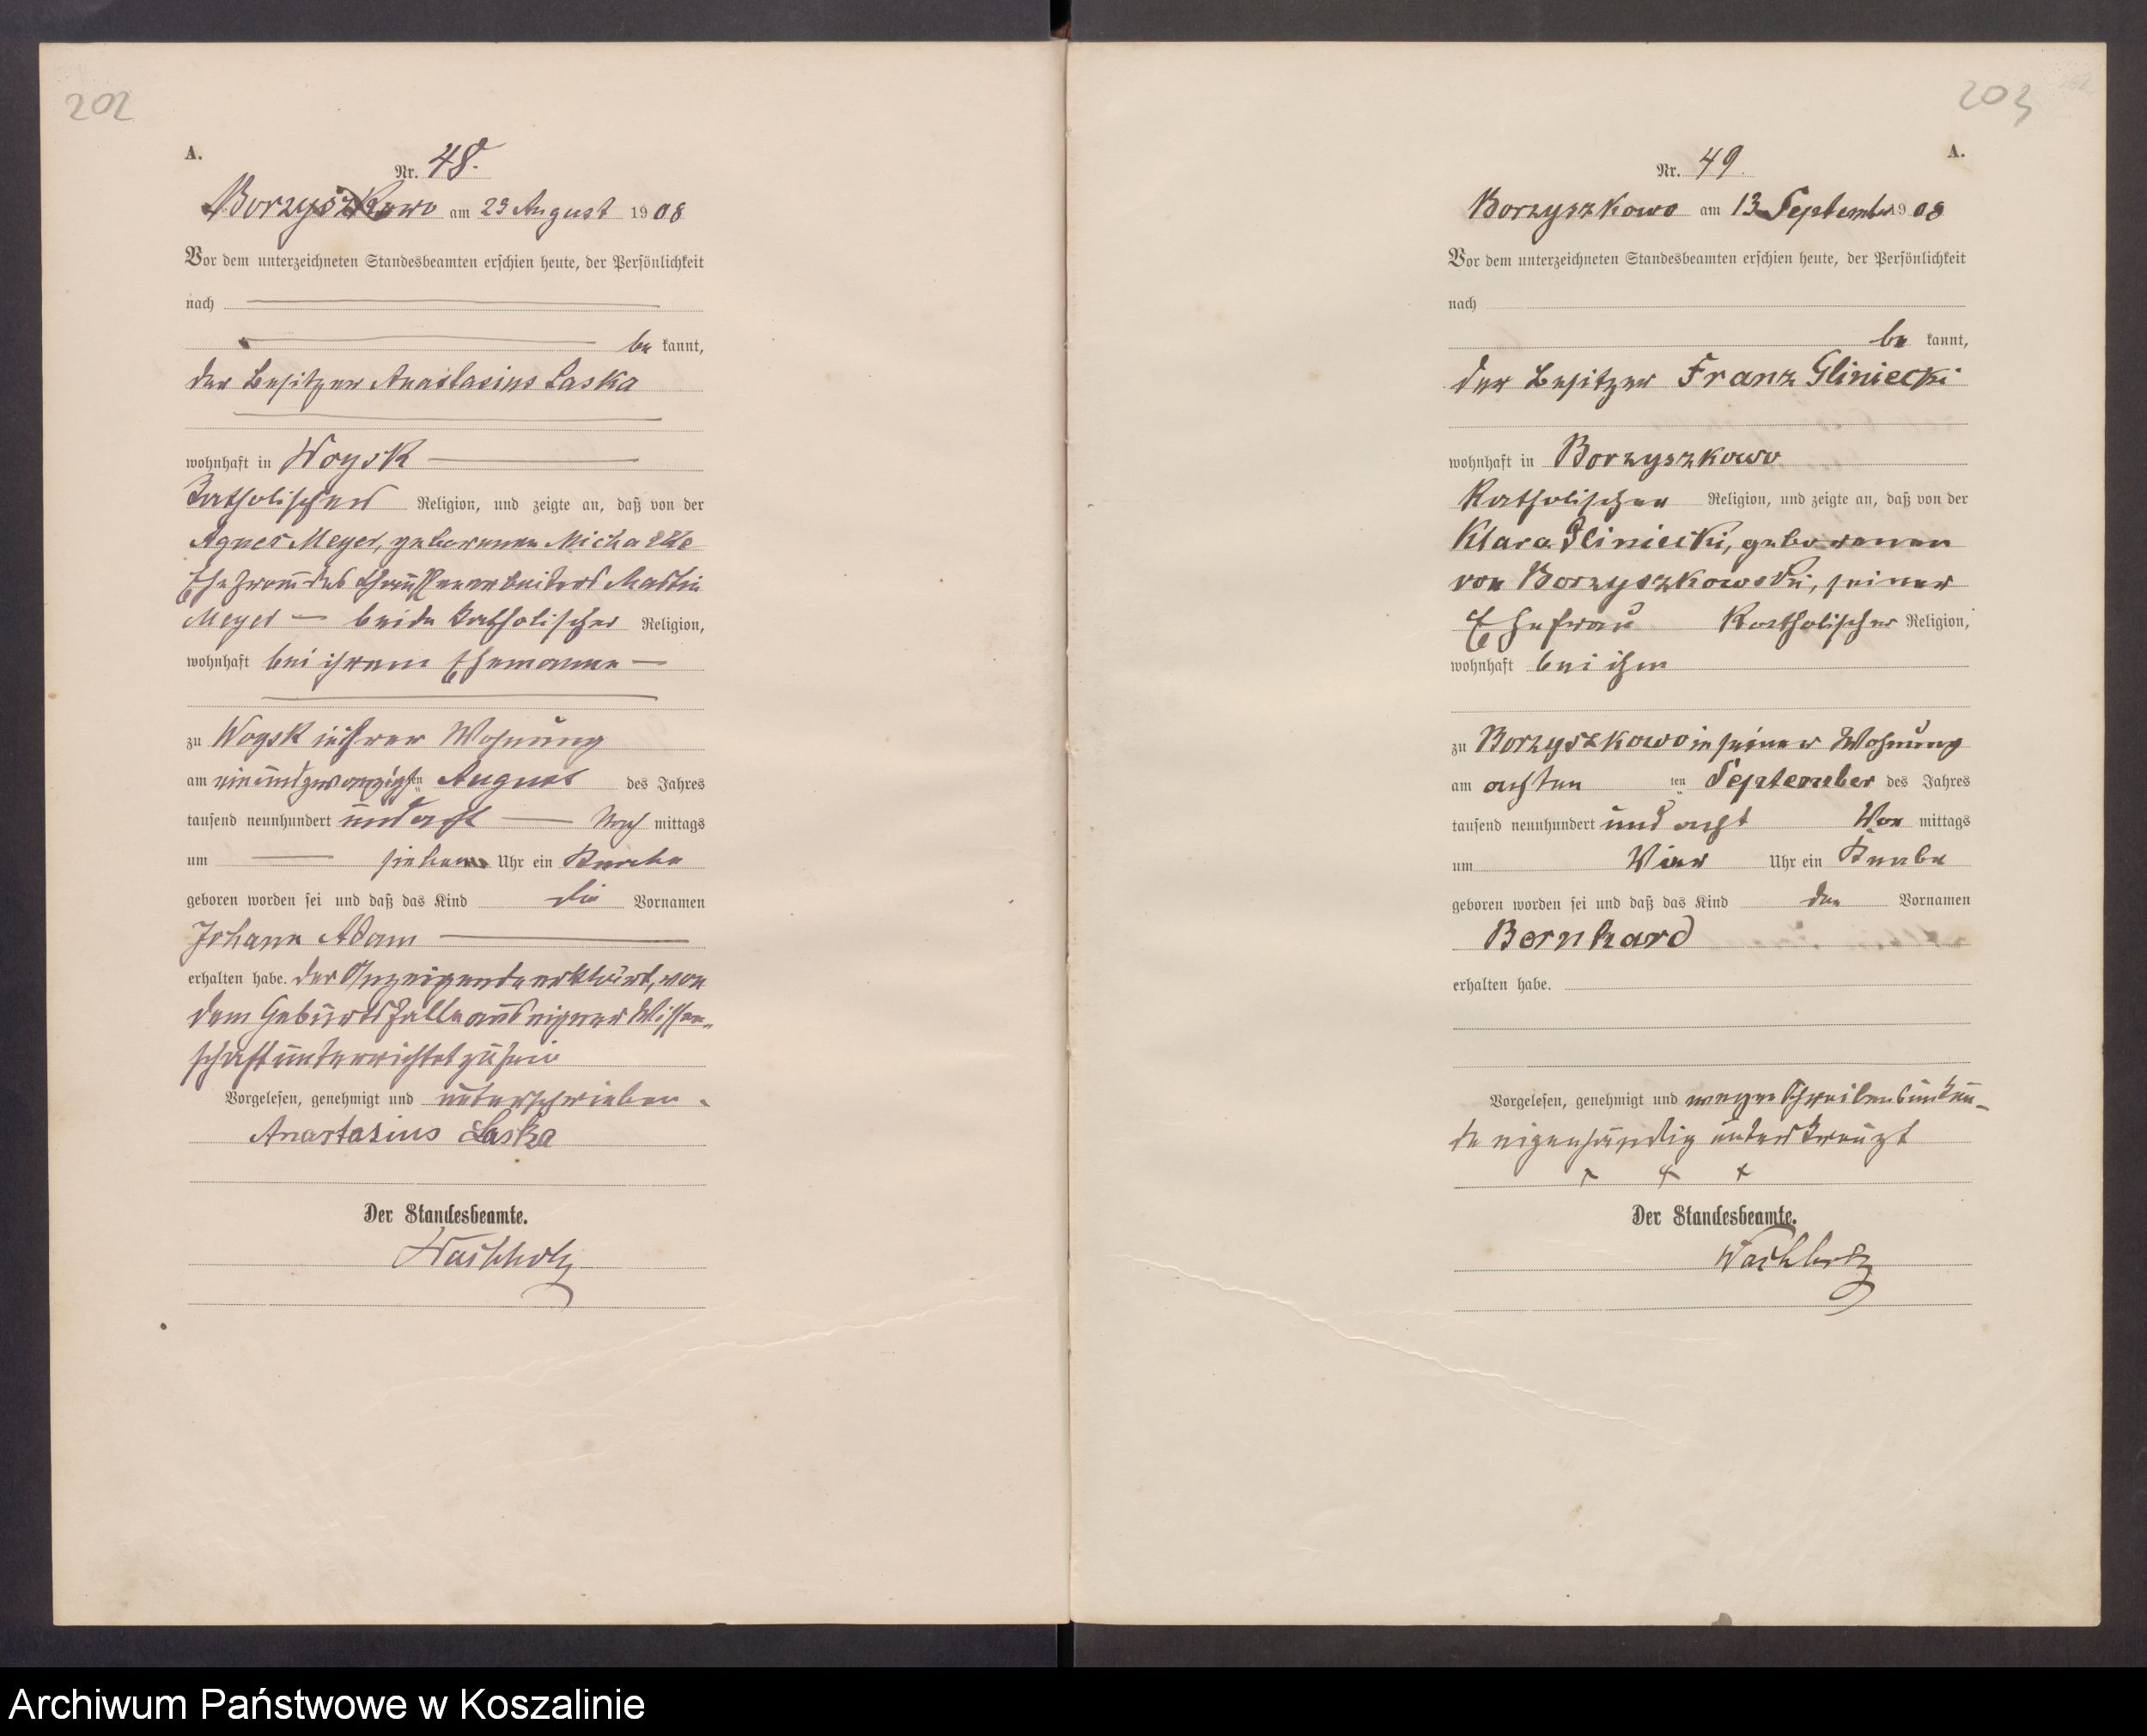 202
A.
Nr. 48.
Borzyszkowo am 23 August 1908
Vor dem unterzeichneten Standesbeamten erschien heute, der Persönlichkeit
nach
be kannt,
der Besitzer Anastasius Laska
wohnhaft in Woysk
katholischer Religion, und zeigte an, daß von der
Agnes Meyer, geborenen
Ehefrau des Martin
Meyer — beide katholischer Religion,
wohnhaft bei ihrem Ehemanne —
zu Woysk in ihrer Wohnung
am einundzwanzigsten August des Jahres
tausend neunhundert und acht — Nach mittags
um — sieben Uhr ein Knabe
geboren worden sei und daß das Kind die Vornamen
Johann Adam
erhalten habe. Der Anzeigende erklärt, von
dem Geburtsfalle aus eigener Wissen-
schaft unterrichtet zu sein
Vorgelesen, genehmigt und unterschrieben.
Anastasius Laska
Der Standesbeamte.
Wachholz
203
A.
Nr. 49.
Borzyszkowo am 13 September 1908
Vor dem unterzeichneten Standesbeamten erschien heute, der Persönlichkeit
nach
be kannt,
der Besitzer Franz Gliniecki
wohnhaft in Borzyszkowo
katholischer Religion, und zeigte an, daß von der
Klara Gliniecki, geborenen
von Borzyszkowski, seiner
Ehefrau katholischer Religion,
wohnhaft bei ihm
zu Borzyszkowo in seiner Wohnung
am achten ten September des Jahres
tausend neunhundert und acht Vor mittags
um Vier Uhr ein Knabe
geboren worden sei und daß das Kind den Vornamen
Bernhard
erhalten habe.
Vorgelesen, genehmigt und wegen Schreibensunkun-
de eigenhändig unterkreuzt
+ + +
Der Standesbeamte.
Wachholz
Archiwum Państwowe w Koszalinie